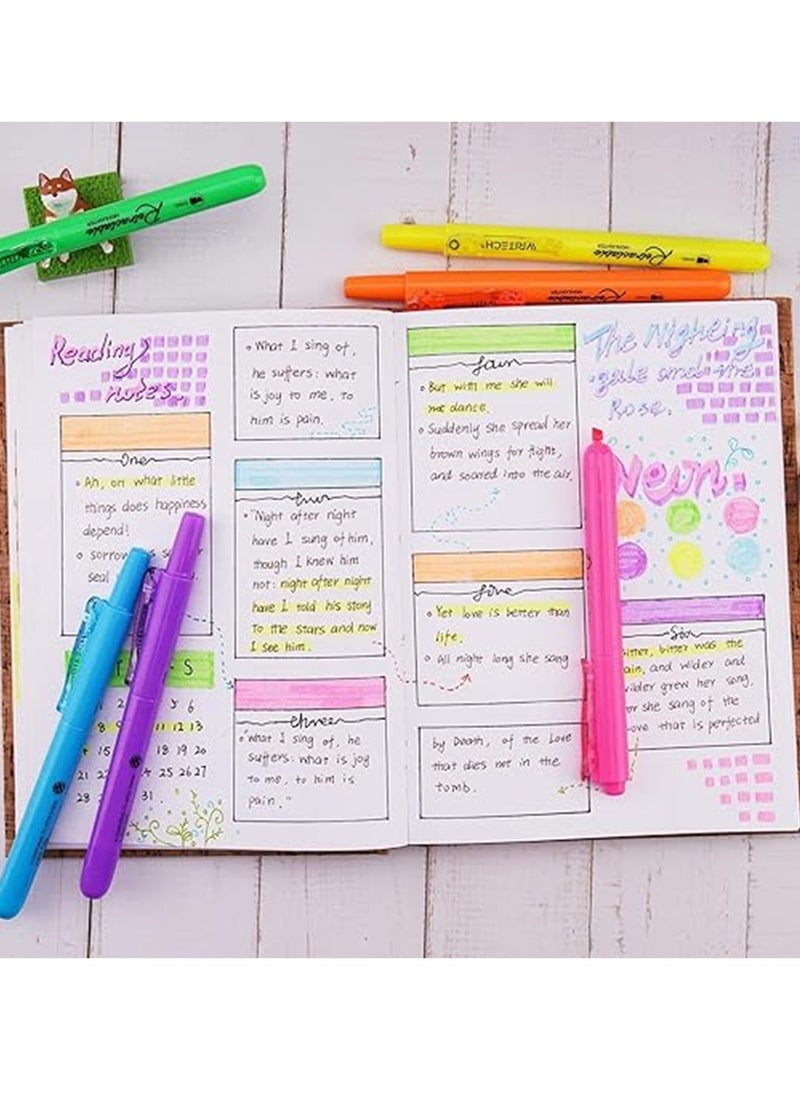 Retractable
HIGHLIGHTER
WRITECH
Retractable
HIGHLIGHTER
Retractable
HIGHLIGHTER
Reading
notes.
One
Ah, on what little
things does happiness
depend!
sorrow
seal
T S
5 6
8 9 11 12 13
15 18 19 20
21 22 25 26 27
28 31.
What I sing of,
he suffers: what
is joy to me, to
him is pain.
two
"Night after night
have I sung of him,
though I knew him
not: night after night
have I told his story
to the stars and now
I see him.
three
"What I sing of, he
suffers: what is joy
to me, to him is
pain."
four
But with me she will
not dance.
Suddenly she spread her
brown wings for flight,
and soared into the air.
five
Yet love is better than
life.
All night long she sang
by Death, of the Love
that dies not in the
tomb.
The Nigheing
gale and the
Rose.
Neon:
Six
bitter, bitter was the
pain, and wilder and
wilder grew her song,
for she sang of the
Love that is perfected